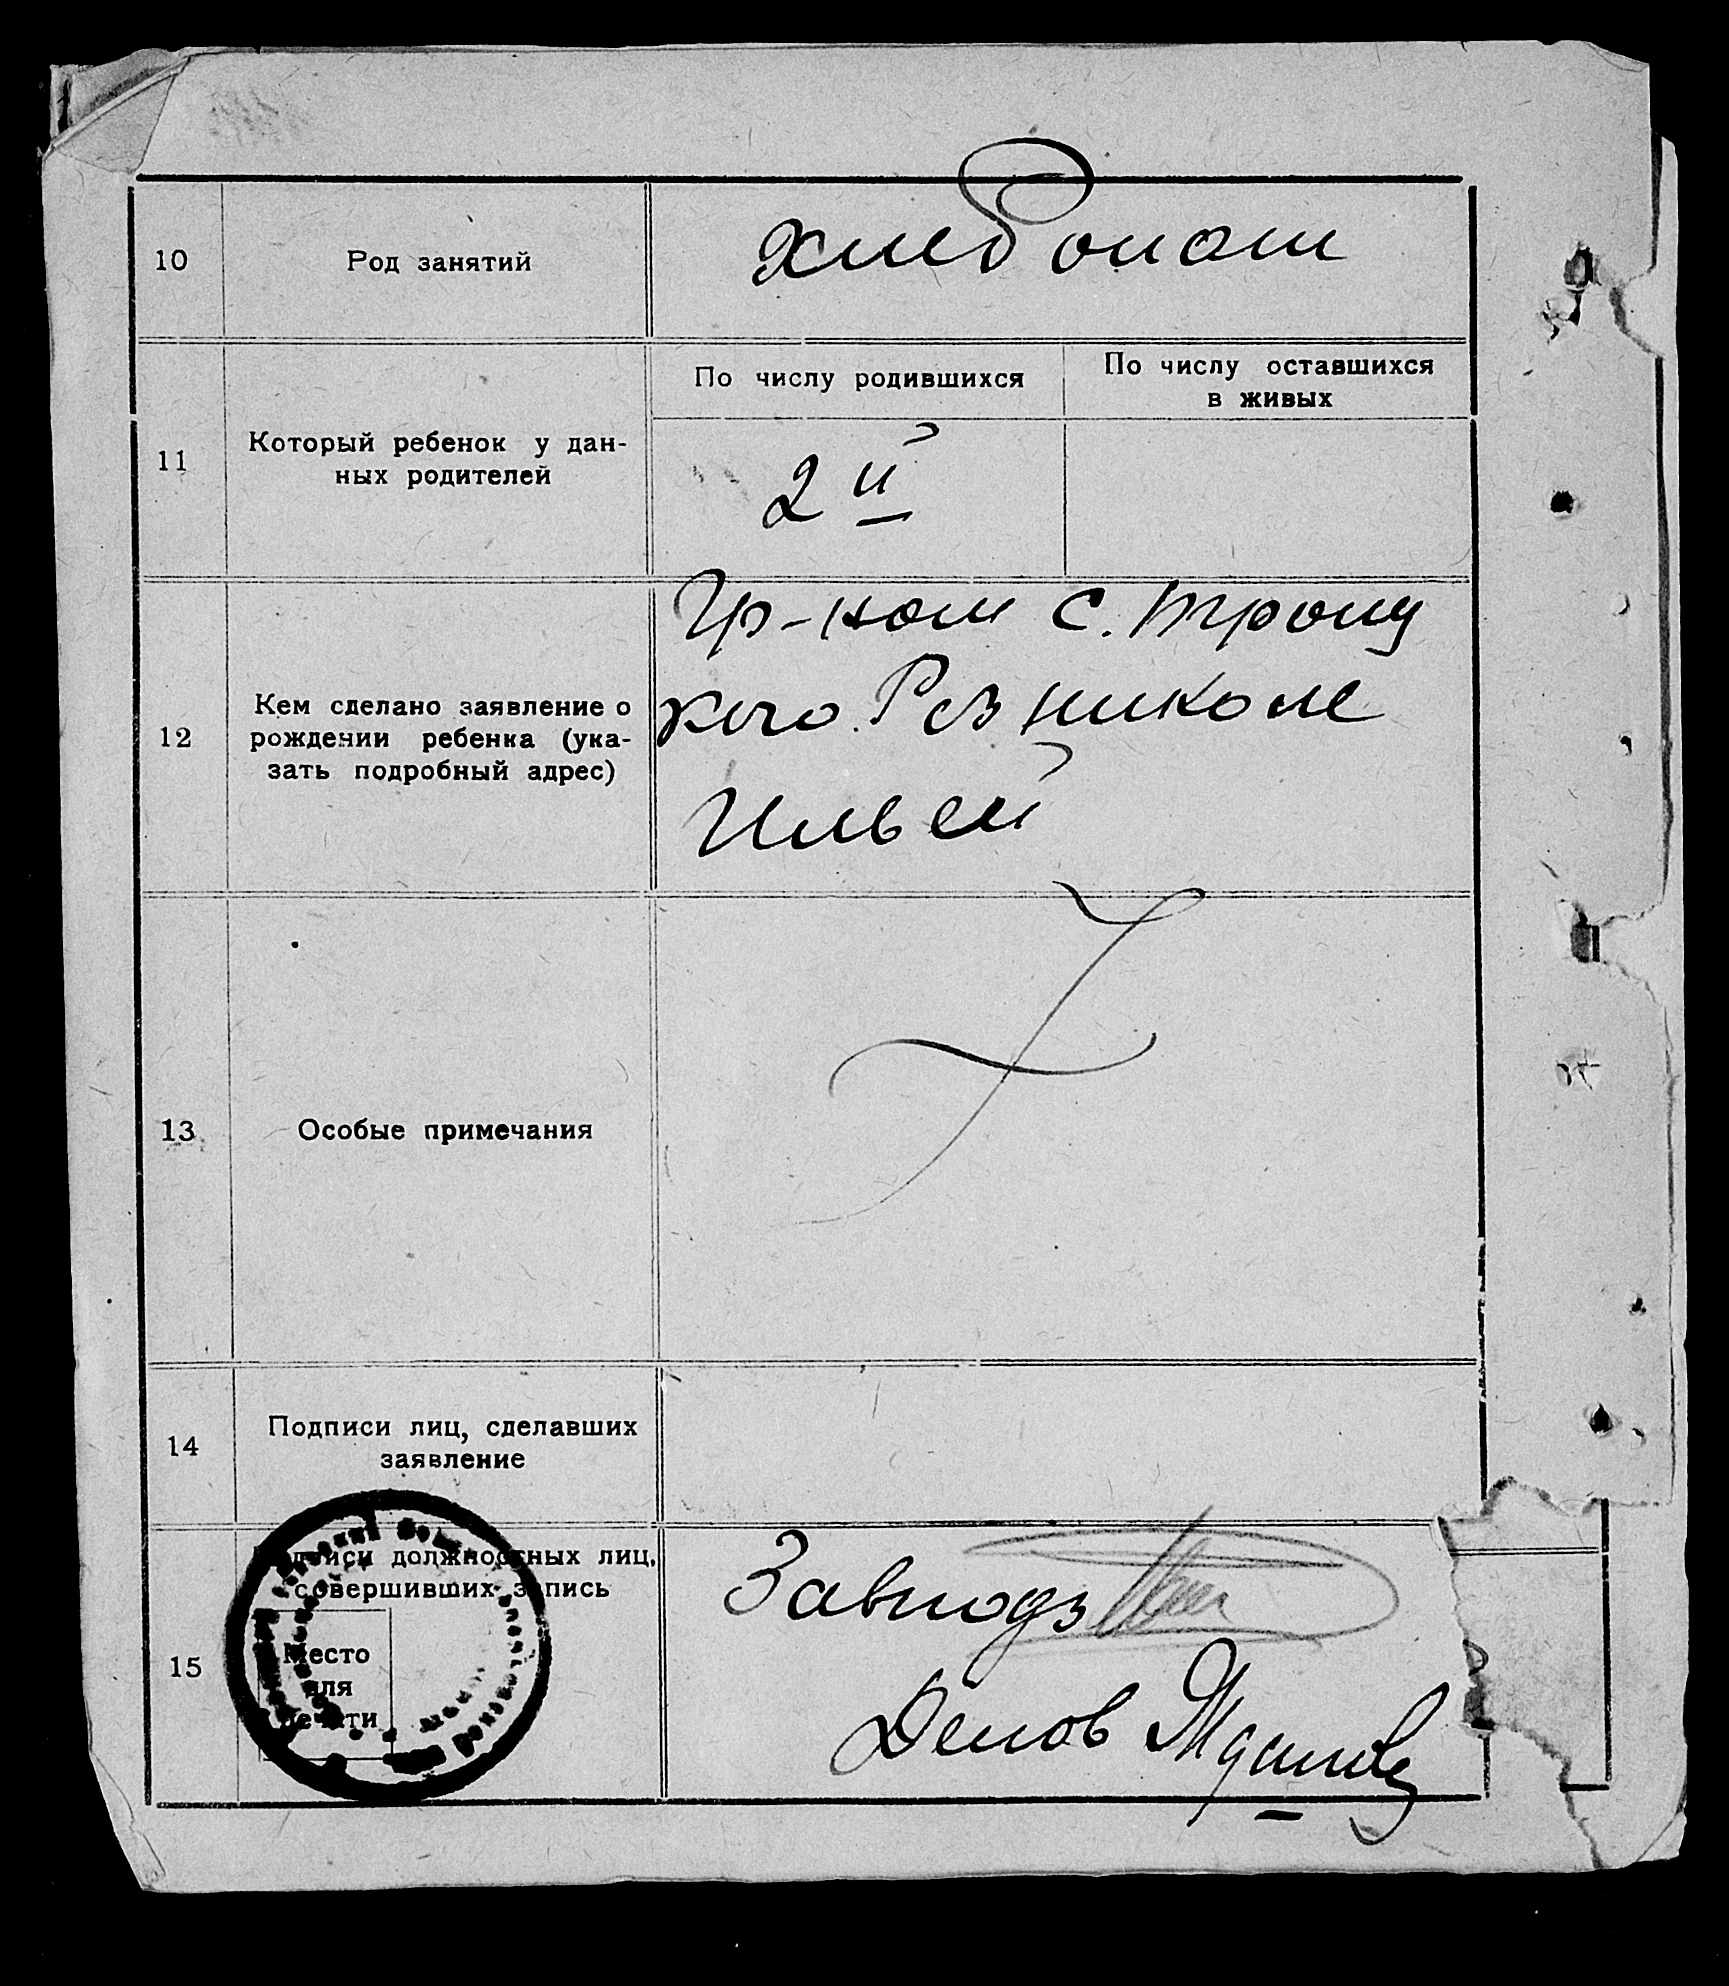 10
Род занятий
хлебопаш
11
Который ребенок у дан-
ных родителей
По числу родившихся
По числу оставшихся
в живых
2й
12
Кем сделано заявление о
рождении ребенка (ука-
зать подробный адрес)
Гр-ном с. Троиц
кого Резником
Ильей
13
Особые примечания
14
Подписи лиц, сделавших
заявление
15
Подписи должностных лиц,
совершивших запись
Место
для
печати
Завподз
Делов